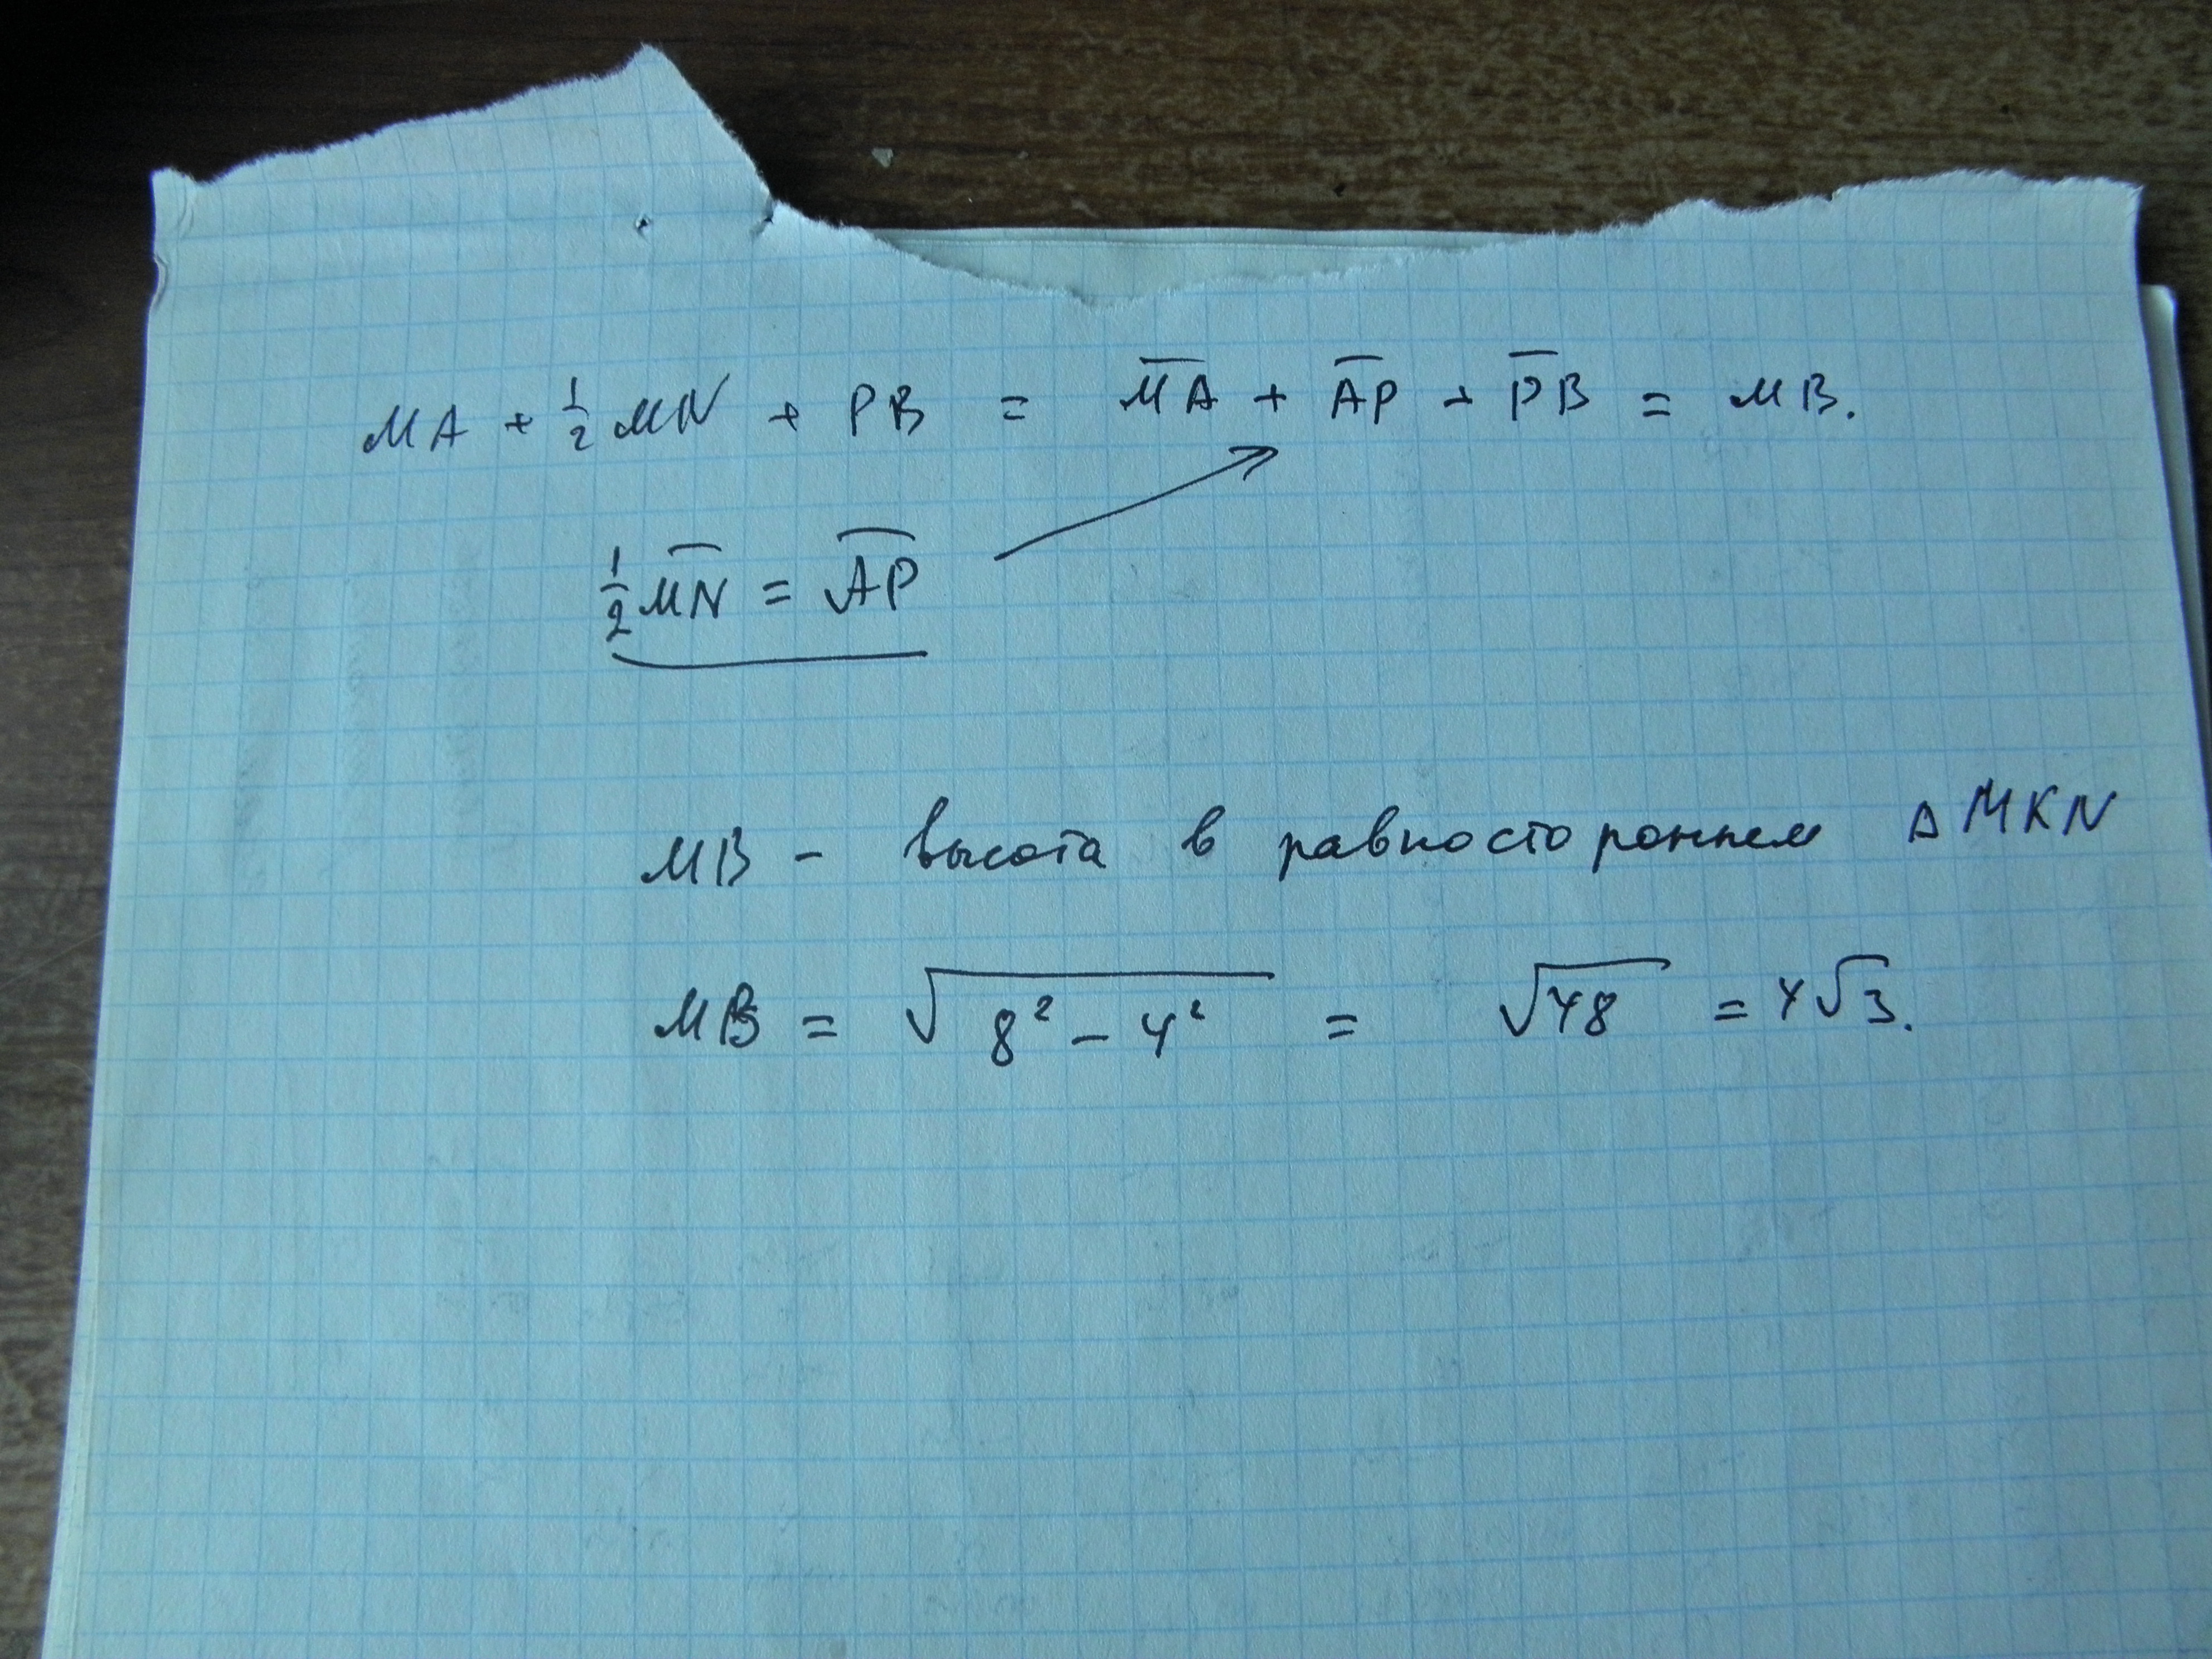 MA + 1/2 MN + PB = M̅A̅ + A̅P̅ + P̅B̅ = MB.
1/2 M̅N̅ = A̅P̅
MB - высота в равностороннем Δ MKN
MB = √(8² - 4²) = √48 = 4√3.